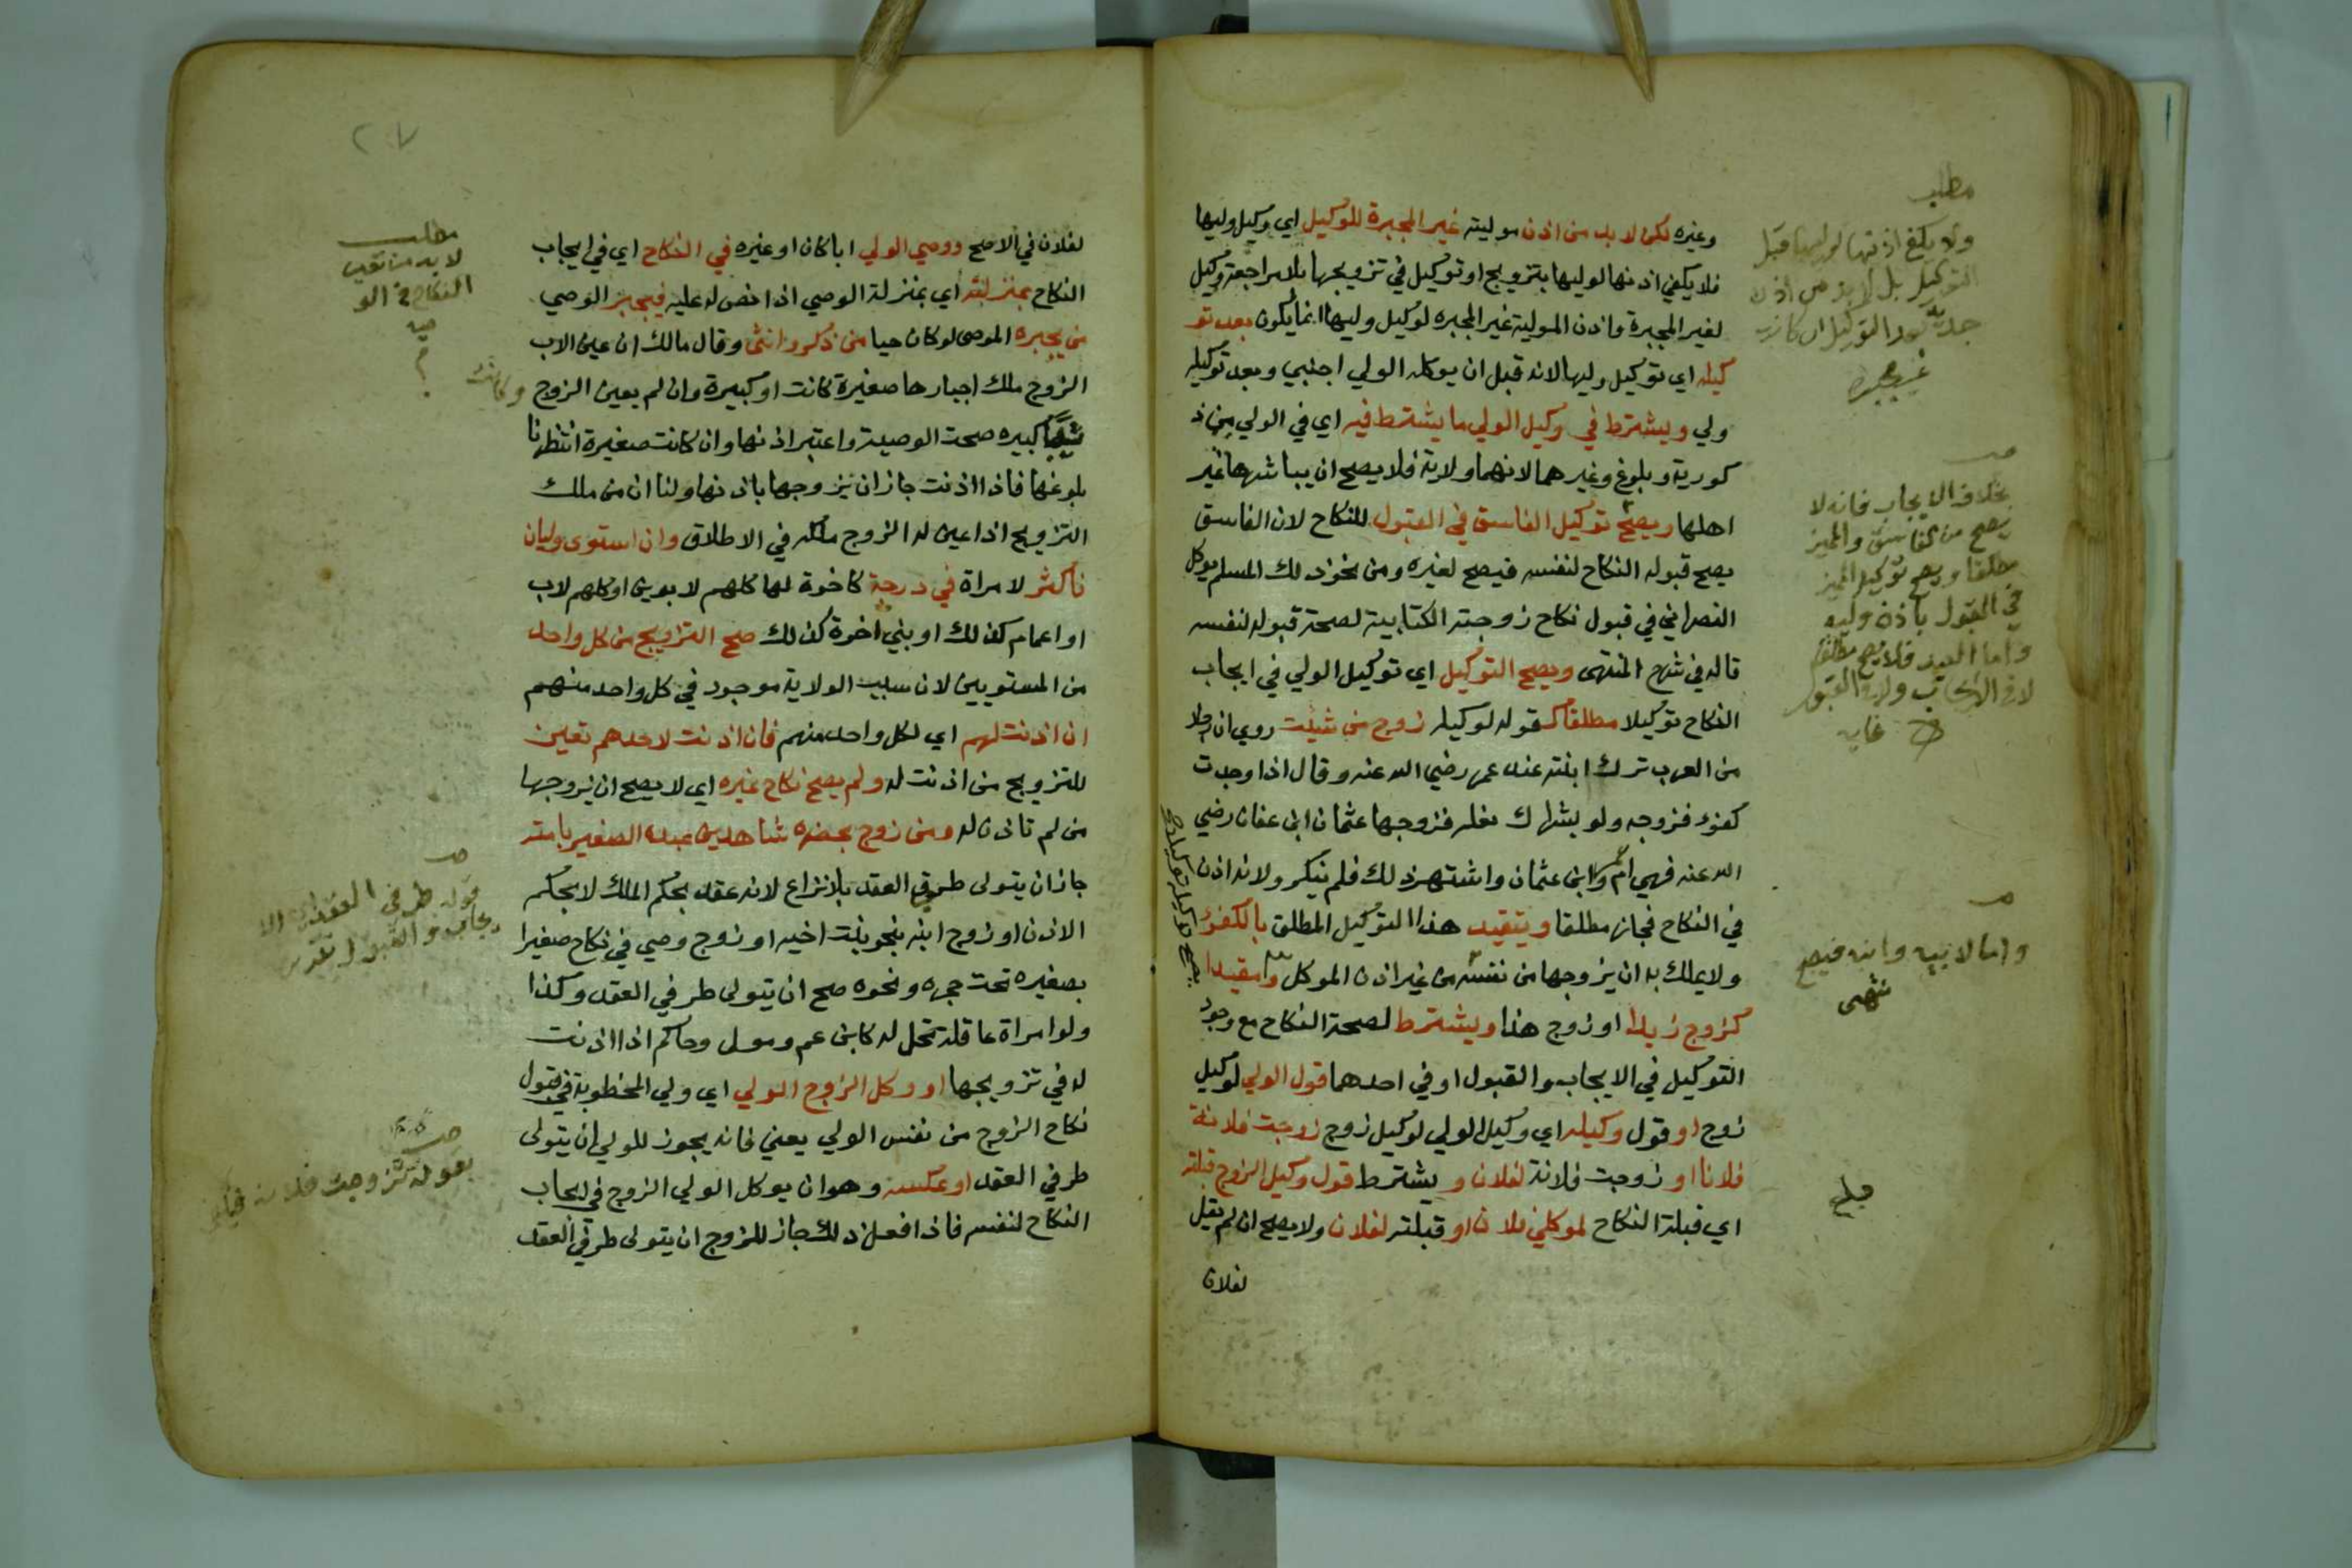 مطلب
ولا يكفي اذنها لوليها قبل
التوكيل بل لا بد من اذن
بعد التوكيل ان كانت
غير مجبرة
وغيره لكن لا بد من اذن موليته غير المجبرة للوكيل اي وكيل وليها
فلا يكفي اذنها لوليها بتزويج او توكيل في تزويجها بلا مراجعة وكيل
لغير المجبرة واذن المولية غير المجبره لوكيل وليها انما يكون بعد تو
كيله اي توكيل وليها لانه قبل ان يوكله الولي اجنبي وبعد توكيله
ولي ويشترط في وكيل الولي ما يشترط فيه اي في الولي من ذ
كورية وبلوغ وغيرهما لانهما ولاية فلا يصح ان يباشرها غير
اهلها ويصح توكيل الفاسق في القبول للنكاح لان الفاسق
يصح قبوله النكاح لنفسه فيصح لغيره ومن نحو ذلك المسلم يوكل
النصراني في قبول نكاح زوجته الكتابية لصحة قبوله لنفسه
قاله في شرح المنتهى ويصح التوكيل اي توكيل الولي في ايجاب
النكاح توكيلا مطلقا كقوله لوكيله زوج من شئت روي ان رجلا
من العرب ترك ابنته عند عمر رضي الله عنه وقال اذا وجدت
كفوء فزوجه ولو بشراك نعله فزوجها عثمان ابن عفان رضي
الله عنه فهي ام عمرو ابن عثمان واشتهر ذلك فلم ينكر ولانه اذن
في النكاح فجاز مطلقا ويتقيد هذا التوكيل المطلق بالكفوء
ولا يملك به ان يزوجها من نفسه من غير اذن الموكل ومقيدا
كزوج زيدا او زوج هذا ويشترط لصحة النكاح مع وجود
التوكيل في الايجاب والقبول او في احدهما قول الولي لوكيل
زوج او قول وكيله اي وكيل الولي لوكيل زوج زوجت فلانة
فلانا او زوجت فلانة لفلان ويشترط قول وكيل الزوج قبلته
اي قبلت النكاح لموكلي فلان او قبلته لفلان ولا يصح ان لم يقل
لفلان
بخلاف الايجاب فانه لا
يصح من الفاسق والمميز
مطلقا ويصح توكيل المميز
في القبول باذن وليه
واما العبد فلا يصح مطلقا
لا في الايجاب ولا في القبول
غايه
واما لابيه وابنه فيصح
منتهى
بلغ
٢٠٧
لفلان في الاصح ووصي الولي ابا كان او غيره في النكاح اي في ايجاب
النكاح بمنزلته أي بمنزلة الوصي اذا نص له عليه فيجبر الوصي
من يجبره الموصى لو كان حيا من ذكر وانثى وقال مالك ان عين الاب
الزوج ملك اجبارها صغيرة كانت او كبيرة وان لم يعين الزوج وكانت
كبيره صحت الوصية واعتبر اذنها وان كانت صغيرة انتظرنا
بلوغها فاذا اذنت جاز ان يزوجها باذنها ولنا ان من ملك
التزويج اذا عين له الزوج ملكه في الاطلاق وان استوى وليان
فأكثر لامراة في درجة كاخوة لها كلهم لابوين او كلهم لاب
او اعمام كذلك او بني اخوة كذلك صح التزويج من كل واحد
من المستويين لان سبب الولاية موجود في كل واحد منهم
ان اذنت لهم اي لكل واحد منهم فان اذنت لاحدهم تعين
للتزويج من اذنت له ولم يصح نكاح غيره اي لا يصح ان يزوجها
من لم تاذن له ومن زوج بحضرة شاهدين عبده الصغير بامته
جاز ان يتولى طرفي العقد بلا نزاع لانه عقد بحكم الملك لا بحكم
الاذن او زوج ابنه بنحو بنت اخيه او زوج وصي في نكاح صغيرا
بصغيره تحت حجره ونحوه صح ان يتولى طرفي العقد وكذا
ولو امراة عاقلة تحل له كابن عم ومولى وحاكم اذا اذنت
له في تزويجها او وكل الزوج الولي اي ولي المخطوبة في قبول
نكاح الزوج من نفس الولي يعني فانه يجوز للولي ان يتولى
طرفي العقد او عكسه وهو ان يوكل الولي الزوج في ايجاب
النكاح لنفسه فاذا فعل ذلك جاز للزوج ان يتولى طرفي العقد
مطلب
لا بد من تعيين
النكاح في الو
صيه
قوله طرفي العقد اي الا
يجاب والقبول
بقوله تزوجت فلانة